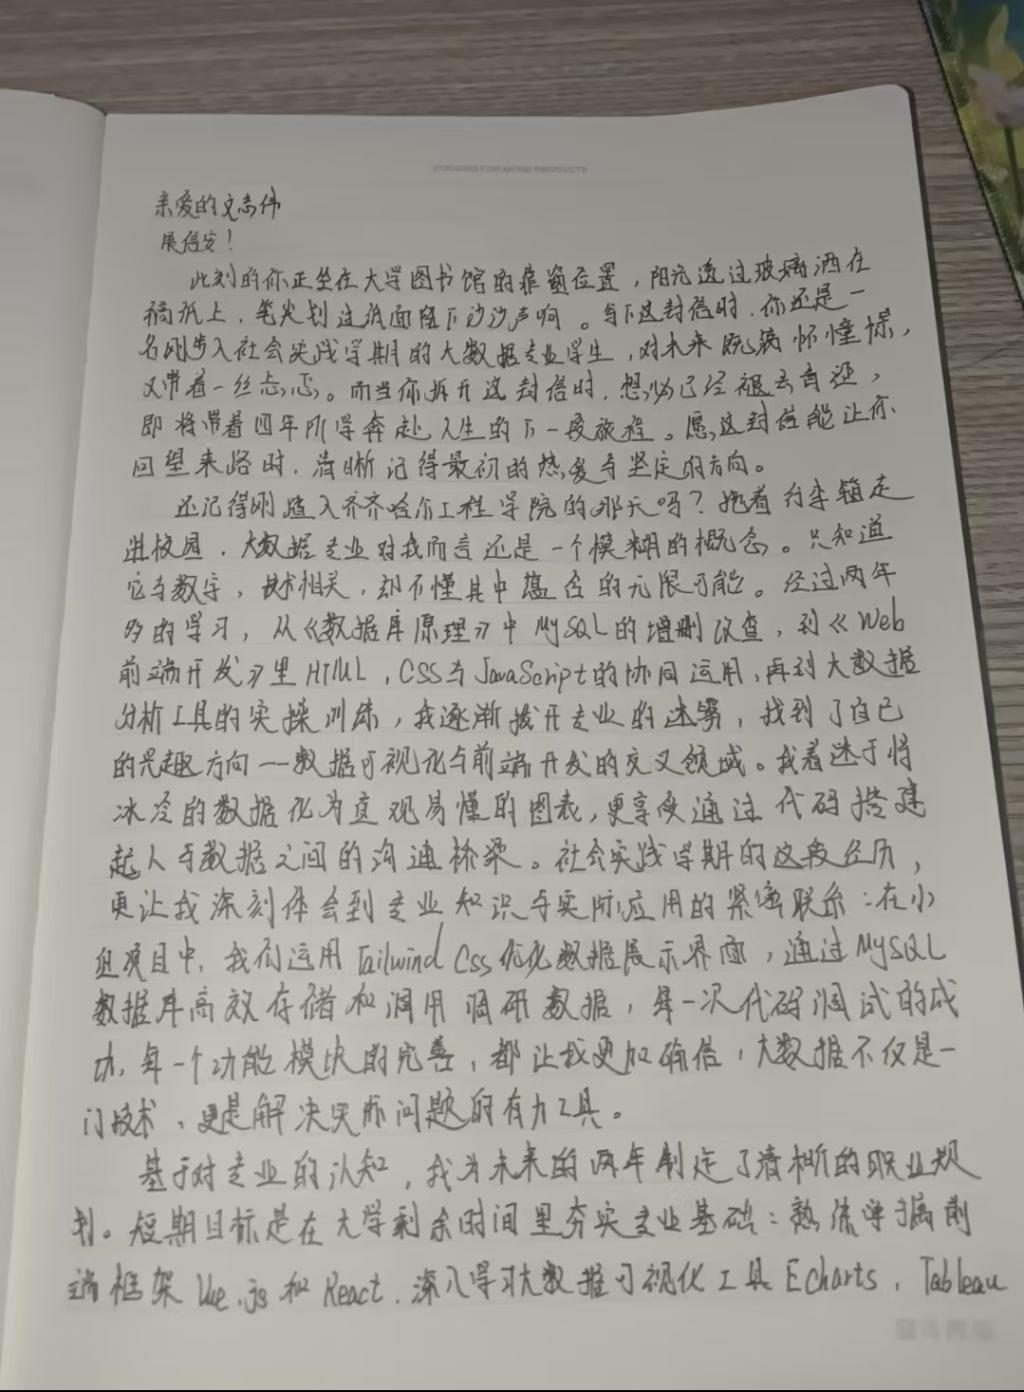 STRIVING FOR GOOD PRODUCTS
亲爱的文志伟
展信安！
此刻的你正坐在大学图书馆的靠窗位置，阳光透过玻璃洒在
稿纸上，笔尖划过纸面留下沙沙声响。写下这封信时，你还是一
名刚步入社会实践学期的大数据专业学生，对未来既满怀憧憬，
又带着一丝忐忑。而当你拆开这封信时，想必已经褪去青涩，
即将带着四年所学奔赴人生的下一段旅程。愿这封信能让你
回望来路时，清晰记得最初的热爱与坚定的方向。
还记得刚踏入齐齐哈尔工程学院的那天吗？拖着行李箱走
进校园，大数据专业对我而言还是一个模糊的概念。只知道
它与数字，技术相关，却不懂其中蕴含的无限可能。经过两年
多的学习，从《数据库原理》中MySQL的增删改查，到《Web
前端开发》里HTML，CSS与JavaScript的协同运用，再到大数据
分析工具的实操训练，我逐渐拨开专业的迷雾，找到了自己
的兴趣方向——数据可视化与前端开发的交叉领域。我着迷于将
冰冷的数据化为直观易懂的图表，更享受通过代码搭建
起人与数据之间的沟通桥梁。社会实践学期的这段经历，
更让我深刻体会到专业知识与实际应用的紧密联系：在小
组项目中，我们运用Tailwind Css优化数据展示界面，通过MySQL
数据库高效存储和调用调研数据，每一次代码调试的成
功，每一个功能模块的完善，都让我更加确信，大数据不仅是一
门技术，更是解决实际问题的有力工具。
基于对专业的认知，我为未来的两年制定了清晰的职业规
划。短期目标是在大学剩余时间里夯实专业基础：熟练掌握前
端框架Vue.js和React，深入学习大数据可视化工具Echarts，Tableau